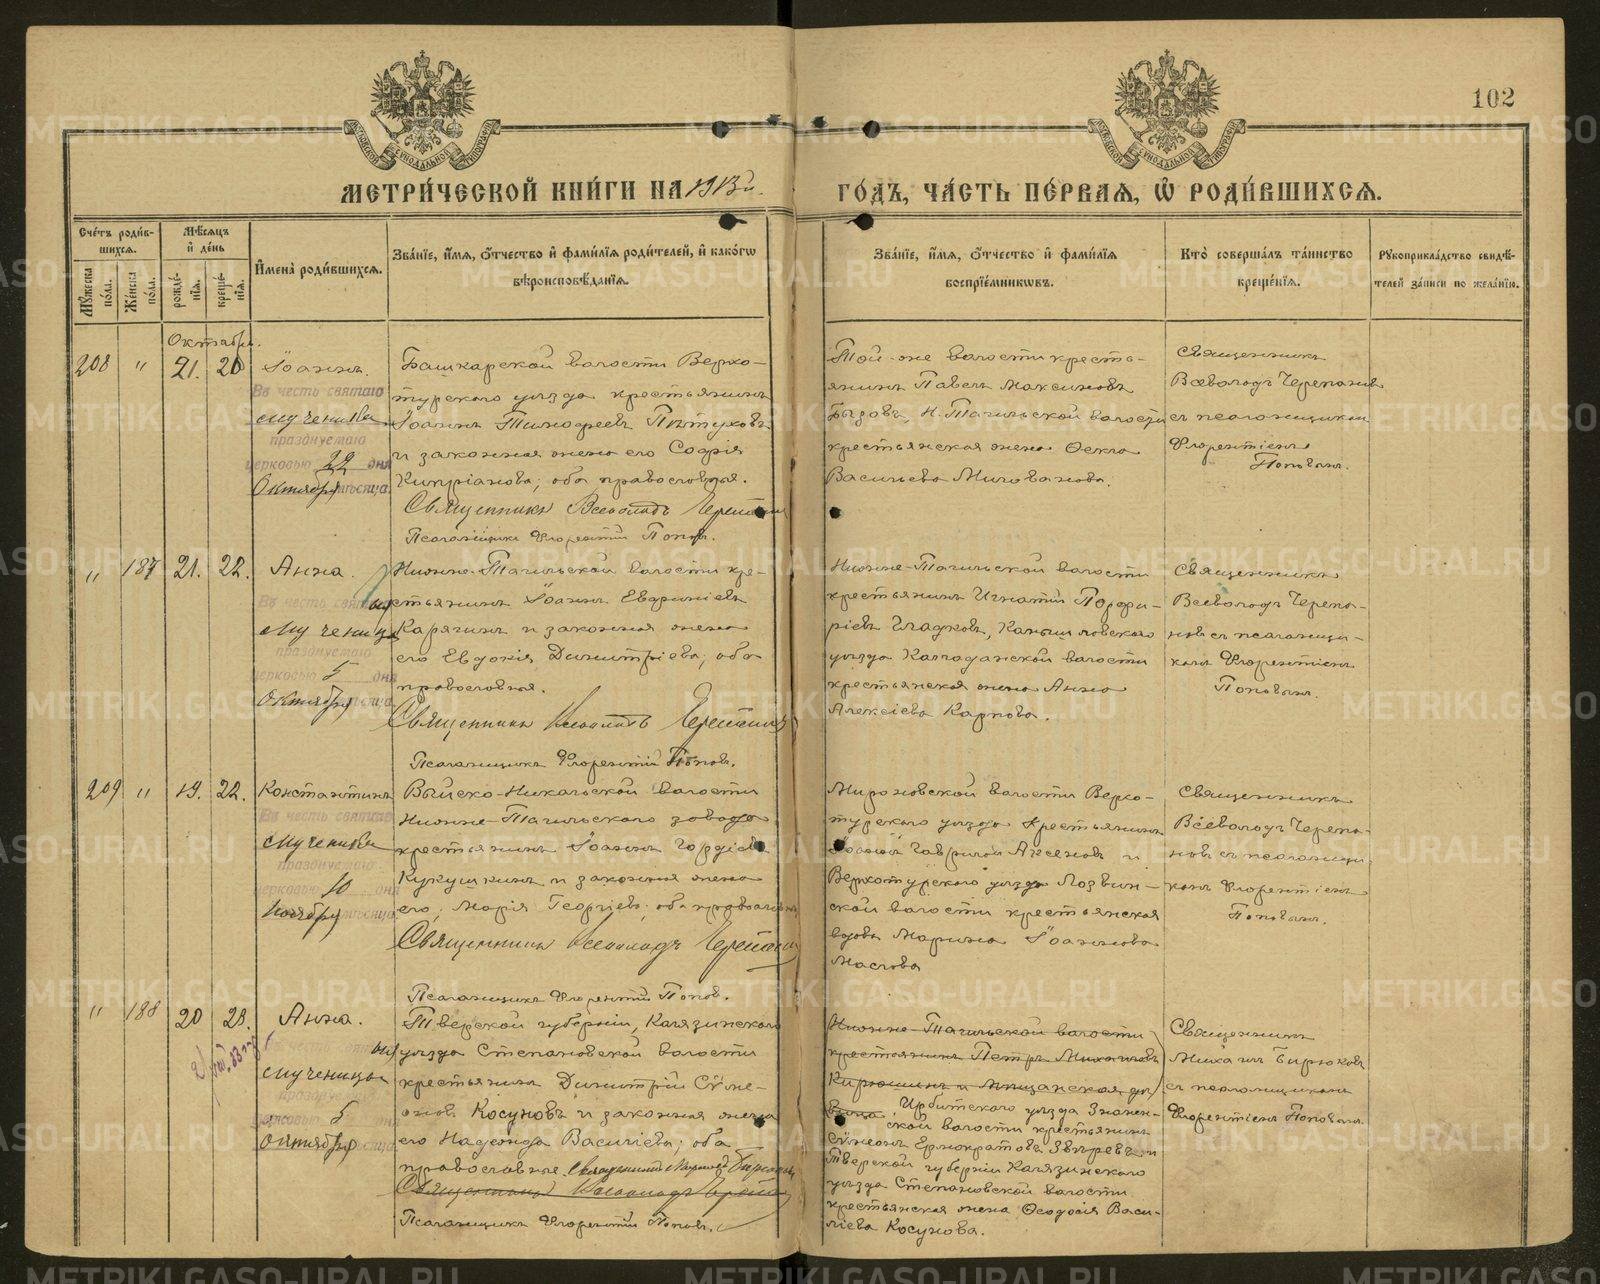 102
МЕТРИ́ЧЕСКОЙ КНИ́ГИ НА 1913 г.
ГО́ДЪ, ЧА́СТЬ ПЕ́РВАѦ, Ѡ҆ РОДИ́ВШИХСѦ.
Сче́тъ роди́вшихсѧ.
Мꙋ́жеска по́ла.
Же́нска по́ла.
Мѣ́сѧцъ и҆ де́нь
рожде́нїѧ.
креще́нїѧ.
И҆мена̀ роди́вшихсѧ.
Зва́нїе, и҆́мѧ, ѻ҆́тчество и҆ фами́лїѧ роди́телей, и҆ како́гѡ
вѣроисповѣ́данїѧ.
Зва́нїе, и҆́мѧ, ѻ҆́тчество и҆ фами́лїѧ
воспрїе́мникѡвъ.
Кто̀ соверша́лъ та́инство
креще́нїѧ.
Рꙋкоприкла́дство свидѣ́-
телей за́писи по жела́нїю.
Октября.
208 " 21. 20
Іоаннъ.
Въ честь святаго
мученика
празднуемаго
церковью 22 дня
Октября мѣсяца.
Башкарской волости Верхо-
турскаго уѣзда крестьянинъ
Іоаннъ Тимофеевъ Пѣтуховъ
и законная жена его Софія
Кипріанова; оба православныя.
Священникъ Всеволодъ Черепановъ
Псаломщикъ Флорентій Поповъ.
Той-же волости кресть-
янинъ Павелъ Максимовъ
Н. Тагильской волости
крестьянская жена Ѳекла
Васильева Милованова.
Священникъ
Всеволодъ Черепановъ
съ псаломщикомъ
Флорентіемъ
Поповымъ.
" 187 21. 22.
Анна.
Въ честь святыя
мученицы
празднуемаго
церковью 5 дня
Октября мѣсяца.
Нижне-Тагильской волости кре-
стьянинъ Іоаннъ Евфиміевъ
Карягинъ и законная жена
его Евдокія Димитріева; оба
православныя.
Священникъ Всеволодъ Черепановъ
Псаломщикъ Флорентій Поповъ.
Нижне-Тагильской волости
крестьянинъ Игнатій Порфи-
ріевъ Гладковъ, Камышловскаго
уѣзда волости
крестьянская жена Анна
Алексіева Карпова.
Священникъ
Всеволодъ Черепа-
новъ съ псаломщи-
комъ Флорентіемъ
Поповымъ.
209 " 19. 22.
Константинъ
Въ честь святаго
мученика
празднуемаго
церковью 10 дня
Ноября мѣсяца.
Выйско-Никольской волости
Нижне-Тагильскаго завода
крестьянинъ Іоаннъ Гордіевъ
Кукушкинъ и законная жена
его, Марія Георгіева; оба православныя
Священникъ Всеволодъ Черепановъ
Псаломщикъ Флорентій Поповъ.
Мироновской волости Верхо-
турскаго уѣзда Крестьянинъ
Гавріилъ Аксеновъ и
Верхотурскаго уѣзда Лозвин-
ской волости крестьянская
вдова Марина Іоаннова
Маслова
Священникъ
Всеволодъ Черепа-
новъ съ псаломщи-
комъ Флорентіемъ
Поповымъ.
" 188 20 23.
Анна.
мученицы
церковью 5 дня
Октября мѣсяца
Тверской губерніи, Калязинскаго
уѣзда Степановской волости
крестьянинъ Димитрій Сѵме-
оновъ Косуновъ и законная жена
его Надежда Василіева; оба
православные. Священникъ Михаилъ Бирюковъ
Священникъ Всеволодъ Черепановъ
Псаломщикъ Флорентій Поповъ.
Нижне-Тагильской волости
крестьянинъ Петръ Михаиловъ
Кирюшинъ и мѣщанская дѣ-
вица Ирбитскаго уѣзда Знамен-
ской волости крестьянинъ
Сѵмеонъ Ермократовъ Звѣревъ и
Тверской губерніи Калязинскаго
уѣзда Степановской волости
крестьянская жена Ѳеодосія Васи-
ліева Косунова.
Священникъ
Михаилъ Бирюковъ
съ псаломщикомъ
Флорентіемъ Поповымъ.